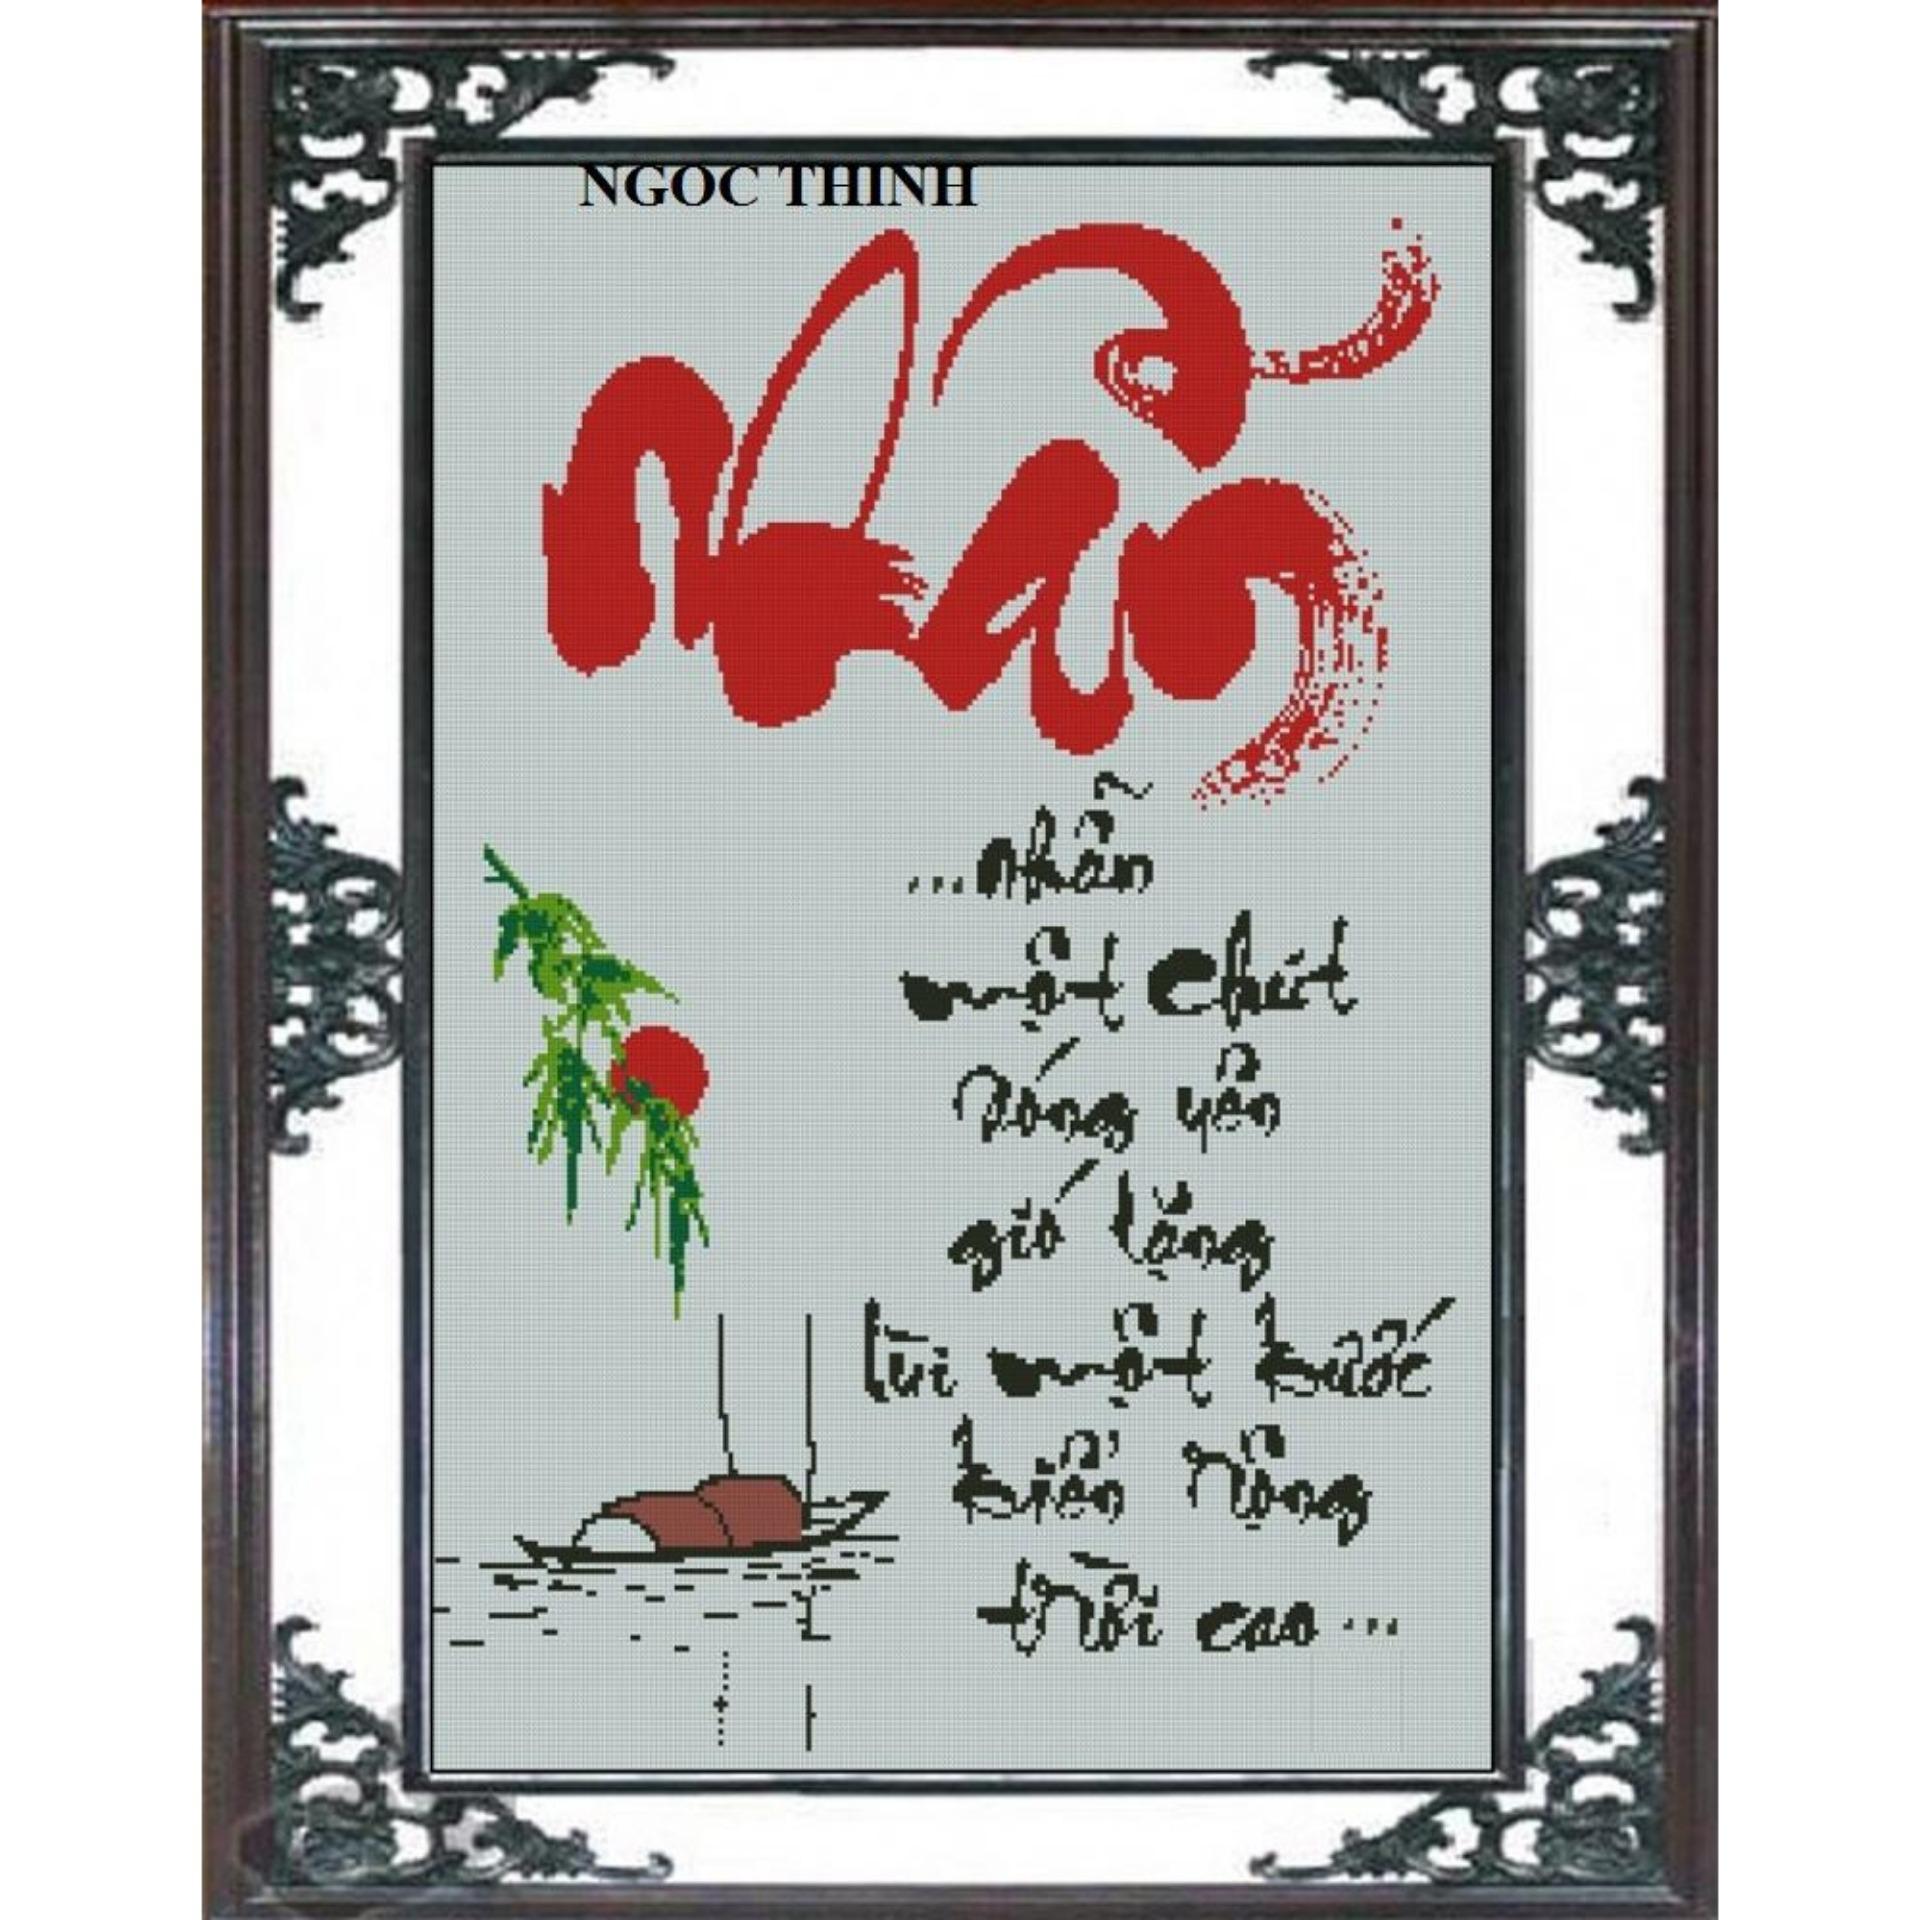 NGOC THINH
Nhẫn
...nhẫn
một chút
sóng yên
gió lặng
lùi một bước
biển rộng
trời cao...